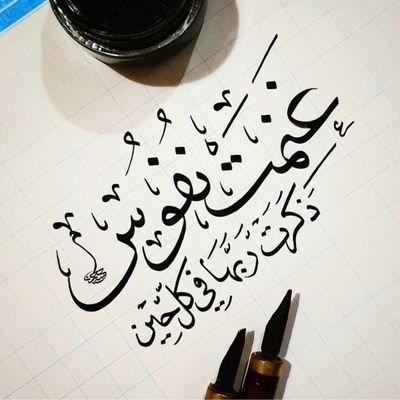 غنمَت نُفُوسُ
ذَكَرَت رَبَّهَا فِي كُلِّ حِيْن